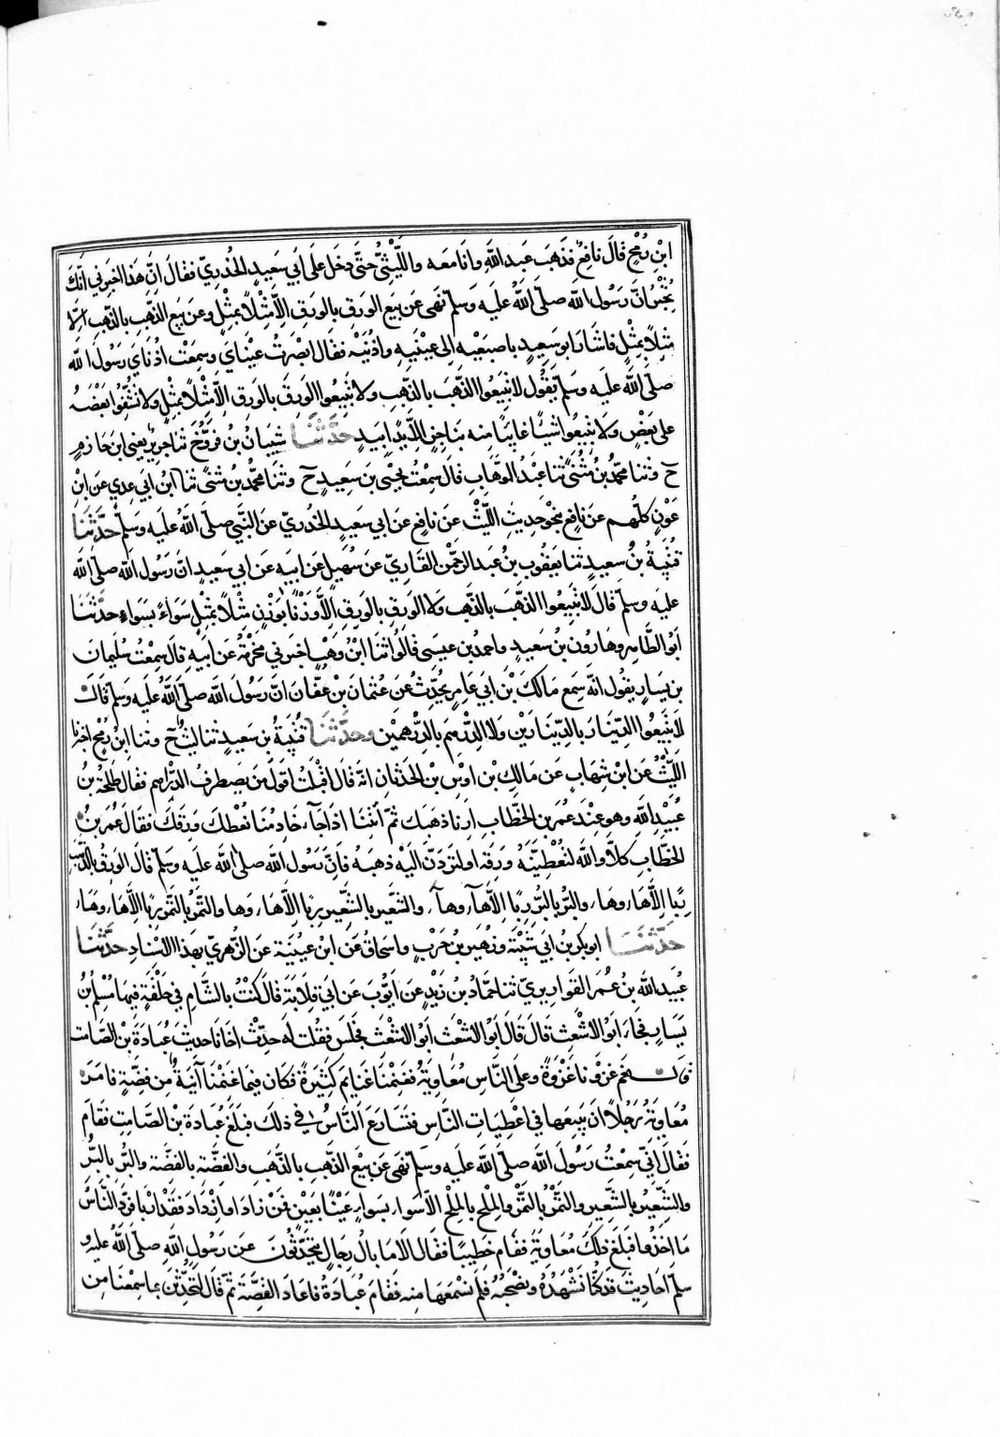 ابْنِ رُمْحٍ قَالَ نافِعٌ فذَهَبَ عَبدُ اللهِ وانَا مَعَه واللَّيْثِيُّ حتَّى دخَلَ علَى أبي سَعِيدٍ الخُدْرِيّ فقَالَ انَّ هَذا اخبَرني أنكَ
تُخْبِرُ انَّ رَسُولَ الله صلّى اللهُ عليه وسَلم نَهَى عَن بَيعِ الوَرِقِ بالوَرِقِ الاَّ مثْلاً بمثْلٍ وعَن بَيع الذّهَبِ بالذّهَب الّا
مثلاً بمثْلٍ فاشَارَ ابو سَعِيدٍ باصبَعَيهِ الى عيْنَيهِ واذُنَيْه فقَال ابْصَرَتْ عيْنَاي وسمِعَتْ اذُنَاي رَسُولَ الله
صلّى الله عليه وسَلم يَقُول لا تَبيعُوا الذّهَبَ بالذّهَب ولا تَبيعُوا الوَرِقَ بالوَرِق الاّ مثْلاً بمثْلٍ ولا تشُفُّوا بَعْضَه
على بَعْضٍ ولا تَبيعُوا شيئًا غايبًا منه بنَاجزٍ الّا يدًا بيَدٍ حَدَّثَنَا شَيبَانُ بْن فَرُّوخ ثنا جرير يعني ابنَ حَازمٍ
ح وثنا محمّد بنُ مُثنّى ثنا عَبْدُ الوهَّابِ قال سمعْتُ يحيى بن سَعِيدٍ ح وثنَا محمّدُ بن مثنى ثنا ابنُ ابي عدي عن ابْنِ
عَوْنٍ كلّهم عَن نافِعٍ بنحوِ حَديثِ اللّيْثِ عَن نافِعٍ عَن ابي سَعيدٍ الخُدريّ عَن النَّبي صلّى اللهُ عليه وسَلم حَدَّثَنَا
قتَيْبَةُ بنُ سَعيدٍ ثنا يَعقُوب بن عَبد الرحمٰن القَاريّ عَن سُهَيلٍ عَن ابيهِ عَن ابي سَعيدٍ انّ رَسُولَ الله صلّى الله
عليه وسلّم قَالَ لا تَبيعُوا الذّهَبَ بالذّهَبِ ولا الوَرِقَ بالوَرِقِ الاَّ وَزْنًا بوَزْنٍ مثْلاً بمثْلٍ سَوَاءً بسَوَاءٍ حدَّثَنَا
ابو الطّاهِر وهَارُون بن سَعيدٍ واحمد بن عيسَى قَالوا ثنا ابْنُ وَهْبٍ اخبَرني مَخرمَةُ عَن ابيهِ قالَ سمعْتُ سُليمَانَ
بن يسَارٍ يَقُول انّه سَمِع مالكَ بْنَ ابي عَامرٍ يُحدّثُ عَن عثمَانَ بْنِ عفَّان انَّ رَسُولَ الله صلّى الله عليه وسَلم قالَ
لا تَبيعُوا الدّينَارَ بالدِّينَارَيْن ولا الدِّرْهمَ بالدِّرهَمَيْن وحَدَّثَنَا قتَيْبَةُ بن سَعيدٍ ثنا ليثٌ ح وثنا ابنُ رُمح اخبرنا
اللّيْثُ عَن ابن شِهَابٍ عَن مَالكِ بْن اوْسِ بْن الحَدَثانِ انّه قَالَ اقبَلْتُ اقولُ مَن يَصطرفُ الدّراهم فقَال طلحةُ بنُ
عُبَيْدِ اللهِ وهو عنْدَ عُمَر بن الخطّابِ ارِنا ذهبَكَ ثمّ أئتنَا اذا جَاءَ خادِمُنَا نُعْطكَ وَرِقكَ فقَالَ عُمَر بنُ
الخطّابِ كلاّ والله لتُعْطيَنَّهُ وَرِقَهُ او لتَرُدّنّ اليْه ذهَبَهُ فَانَّ رَسُولَ الله صلى الله عليه وسَلم قالَ الوَرِقُ بالذّهَب
رِبًا الاَّ هاءَ وهَاءَ والبُرّ بالبُرّ ربًا الاّ هآءَ وهآءَ والشَعير بالشَّعيرِ ربًا الاَّ هَاءَ وهَا والتمرُ بالتمر ربًا الاَّ هَاءَ وهَاءَ
حَدَّثَنَا ابو بكر بْن ابي شَيْبَة وزُهَيرُ بن حَربٍ واسحَاقُ عَن ابن عيَينَة عَن الزُهريّ بهَذا الاسْنادِ حدَّثَنَا
عُبَيد الله بنُ عُمَر القَواريريّ ثنا حمَّادُ بنُ زَيْدٍ عن ايُّوبَ عَن ابي قلابَة قَالَ كنْتُ بالشَّامِ في حَلقَةٍ فيهَا مُسْلمُ بنُ
يَسَارٍ فجَاءَ ابُو الاَشْعَث قَالَ قَالوا ابُو الاَشعَث ابُو الاَشعَث فجَلَسَ فقُلتُ لَه حَدِّثْ اخَانَا حَديثَ عُبَادَةَ بْن الصَّامت
قال نعَم غزَونا غَزْوَةً وعَلَى النَّاسِ مُعَاويَةُ فغَنمْنَا غنَايِمَ كثيرَةً فكَان فيمَا غنمْنَا آنيَةٌ مِن فضَّةٍ فامَرَ
مُعَاوِيَةُ رَجُلاً ان يَبيعَهَا في اعْطيَاتِ النّاسِ فتسَارَعَ النَّاسُ في ذلكَ فبلَغَ عُبَادَة بْن الصَّامتِ فقَامَ
فقَالَ انّي سمعْتُ رَسُولَ الله صلّى الله عليه وسَلم نهَى عَن بَيْعِ الذّهَبِ بالذّهَبِ والفضّةِ بالفضَّةِ والبُرِّ بالبُرِّ
والشَعيرِ بالشَّعيرِ والتمْرِ بالتمْر والملحِ بالملحِ الاّ سَواءً بسَواءٍ عَيْنًا بعَيْنٍ فمَنْ زادَ او ازْدَادَ فقَدْ ارْبَا فرَدَّ النَّاسُ
مَا اخذُوا فبلَغ ذلكَ مُعَاويَةَ فقَام خَطيبًا فقَالَ الاَ مَا بالُ رجَالٍ يتحَدَّثُونَ عَن رَسُولِ اللهِ صلّى اللهُ عليه و
سلم احَاديثَ قد كنّا نَشْهَدُهُ ونصْحَبُهُ فلم نسْمعْهَا منه فقَامَ عُبَادَةُ فاعَادَ القصَّةَ ثمّ قَالَ لنُحدّثنَّ بما سمعْنَا مِن